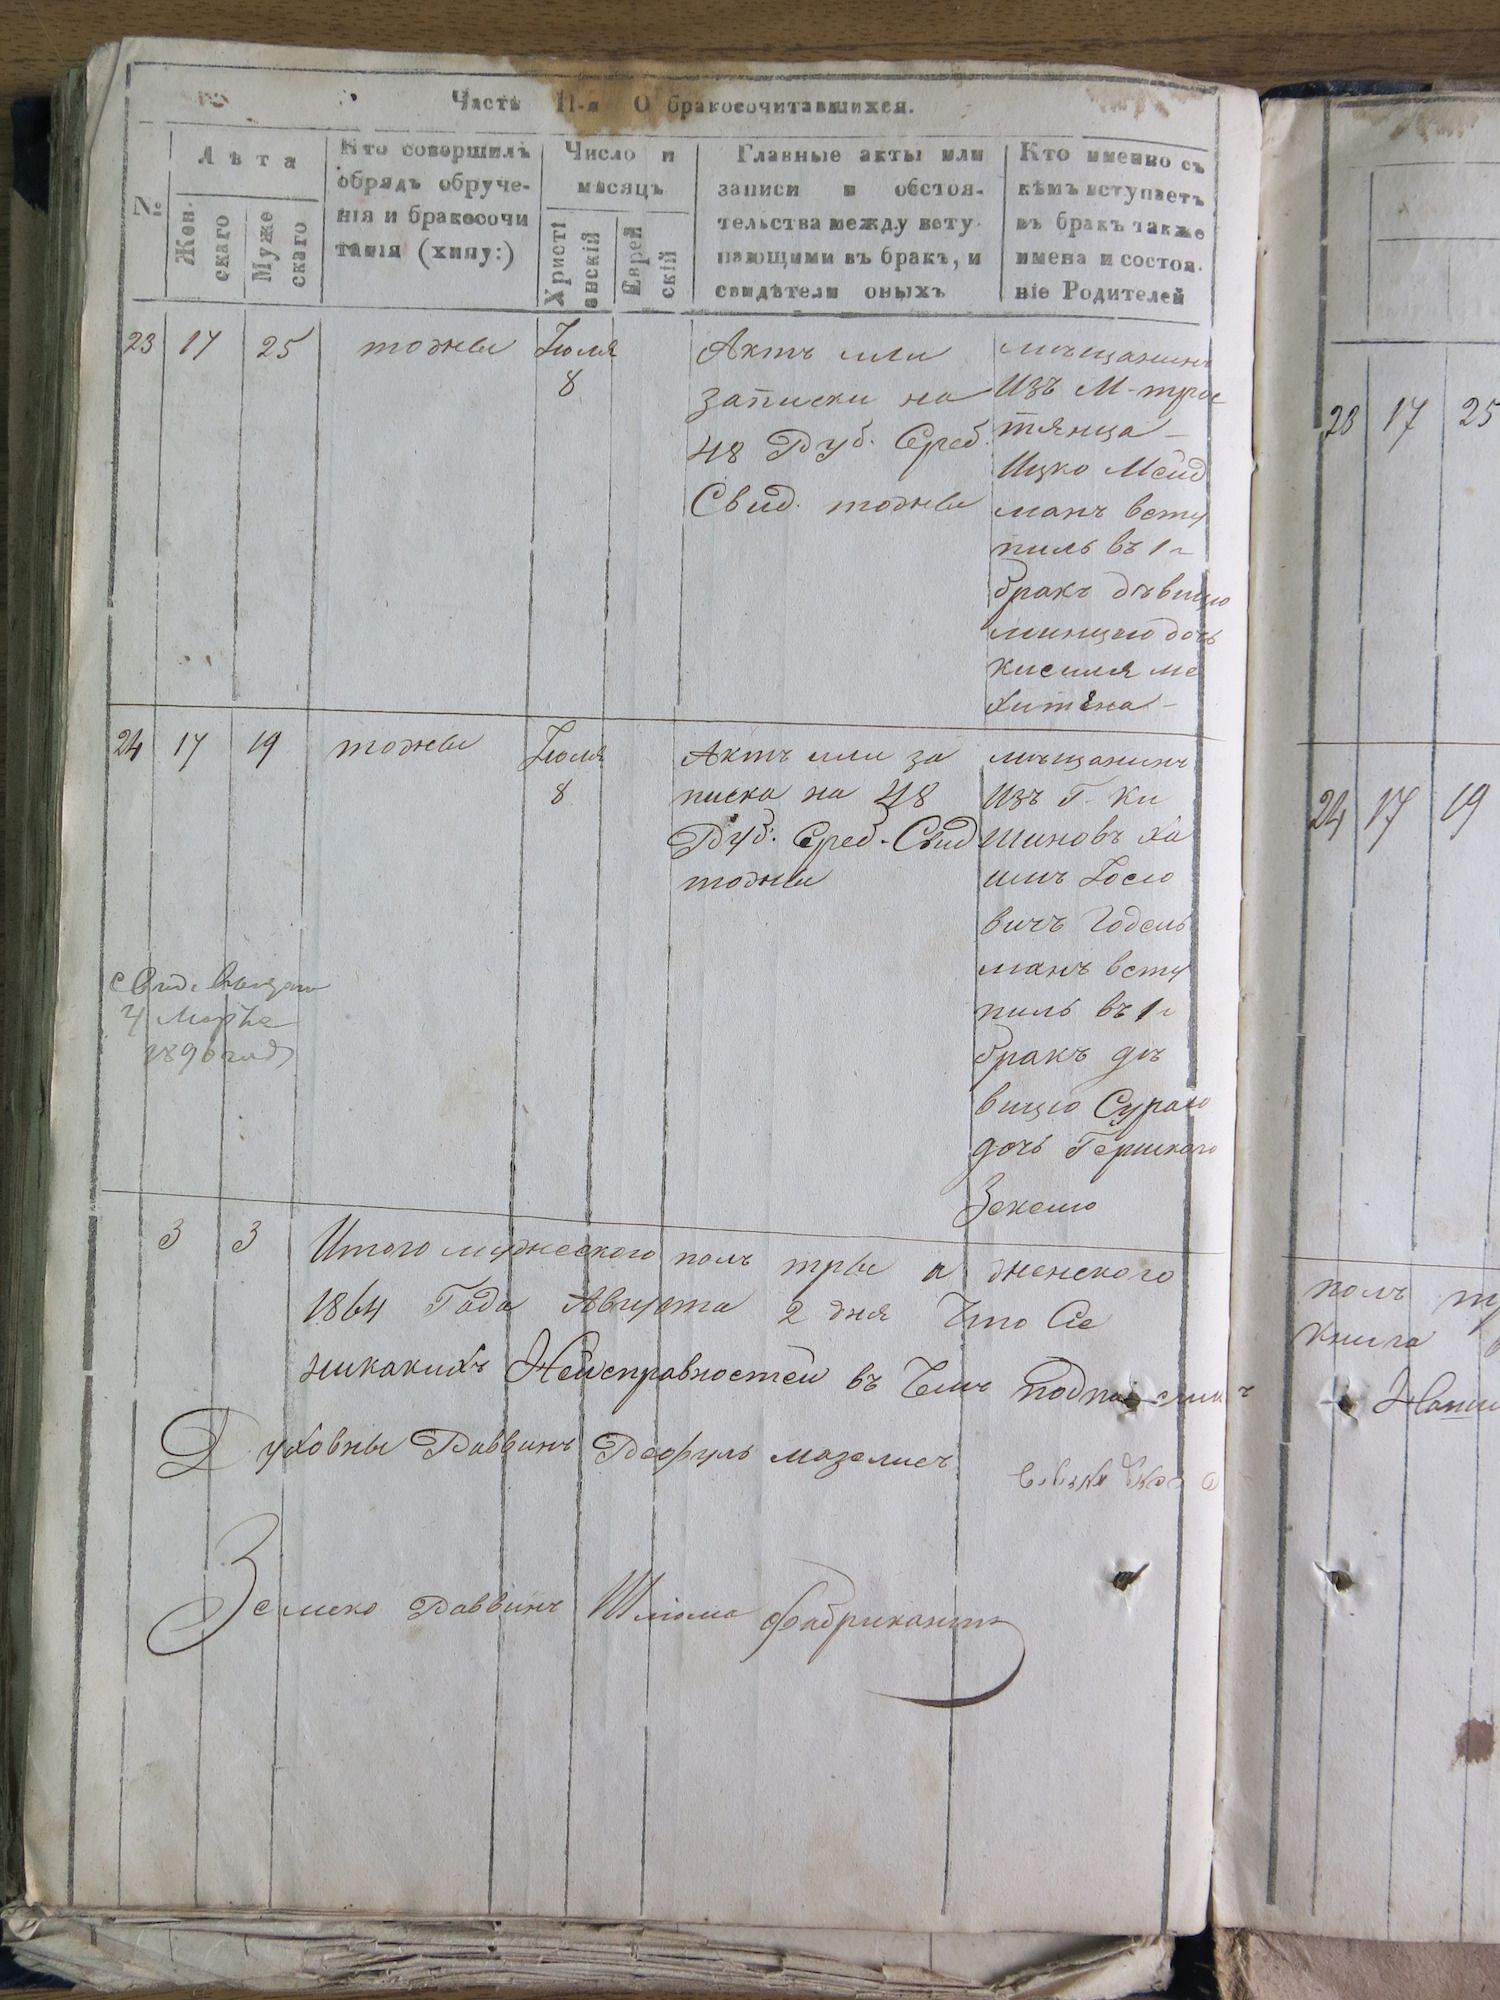 Часть II-я О бракосочитавшихся.
№
Лѣта
Жен-
скаго
Муже
скаго
Кто совершилъ
обрядъ обруче-
нія и бракосочи
танія (хипу:)
Число и
мѣсяцъ
Христі
анскій
Еврей
скій
Главные акты или
записи и обстоя-
тельства между всту-
пающими въ бракъ, и
свидѣтели оныхъ
Кто именно съ
кѣмъ вступаетъ
въ бракъ также
имена и состоя-
ніе Родителей
23 17 25 тожъ
Іюля
8
Актъ или
записки на
48 Руб. Среб.
Свид. тожъ
мѣщанинъ
изъ М. трос
тянца
Ицко Мейд
манъ всту
пилъ въ 1
бракъ дѣвицю
дочь
24 17 19 тожъ
Іюля
8
Актъ или за
писка на 48
Руб. Среб. Свид
тожъ
мѣщанинъ
изъ Г. Ки
шиновъ Ха
имъ Іосю
вичъ Годель
манъ всту
пилъ въ 1
бракъ дѣ
вицю Сурою
дочь Гершкого
Свид.
4 Марта
1890 год
3 3 Итого мужеского полъ три а женского
1864 Года Августа 2 дня Что Сіе
никакихъ Неисправностей въ чемъ
Духовны Раввинъ Рефуль мазелисъ
Земско Раввинъ Шлома Фабрикантъ
23 17 25
24 17 19
полъ
книга